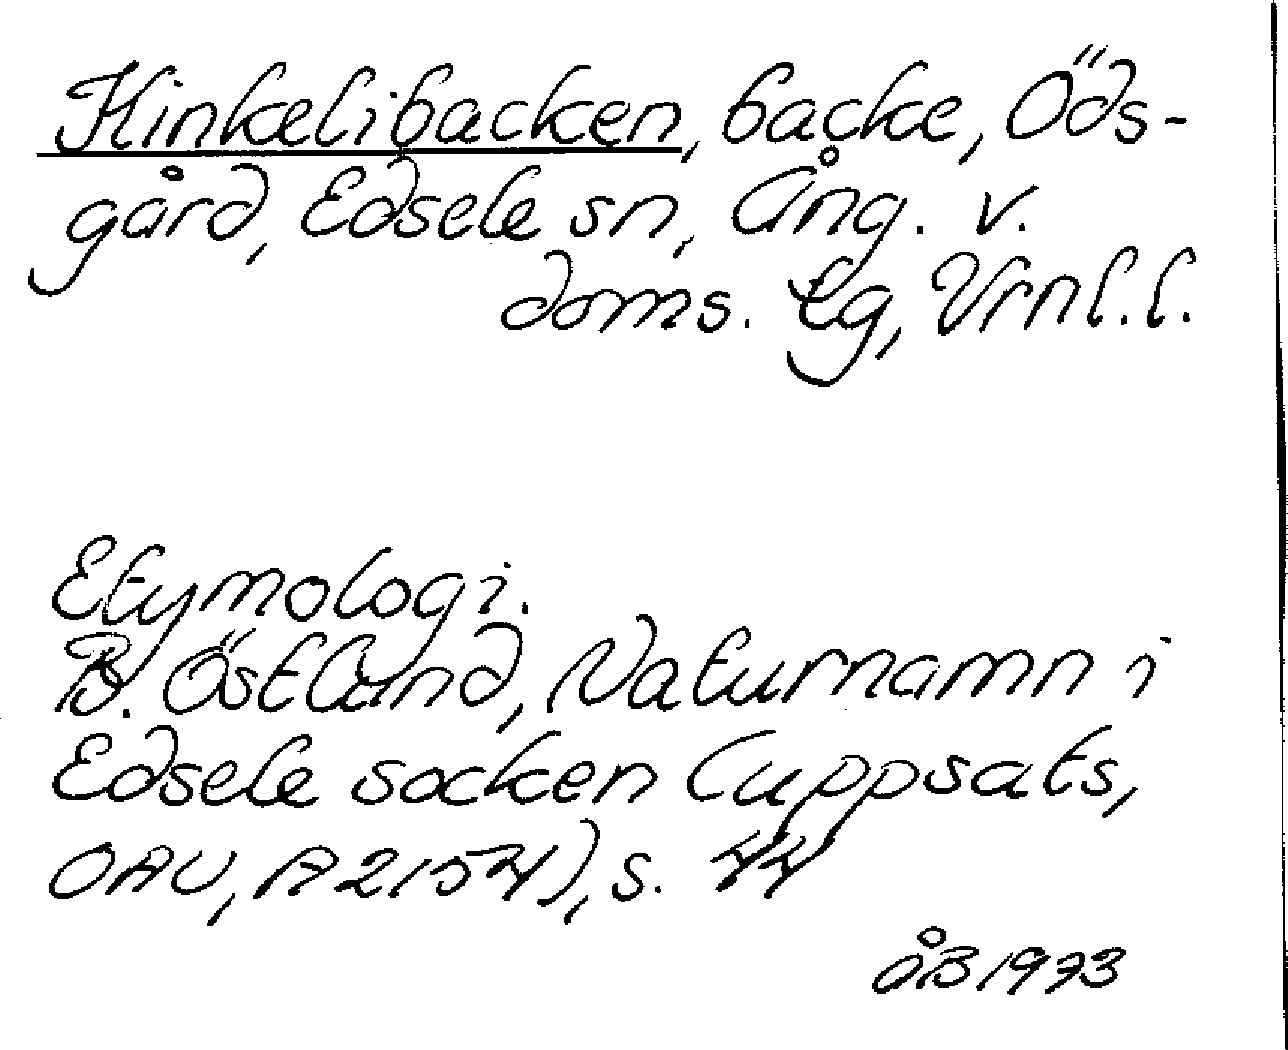 Hinkelibacken, backe, Öds-
gård, Edsele sn, Ång. v.
doms. tg, Vrnl. l.
Etymologi.
B. Östlund, Naturnamn i
Edsele socken (uppsats,
OAU, A 2154), s. 44
ÅB 1973